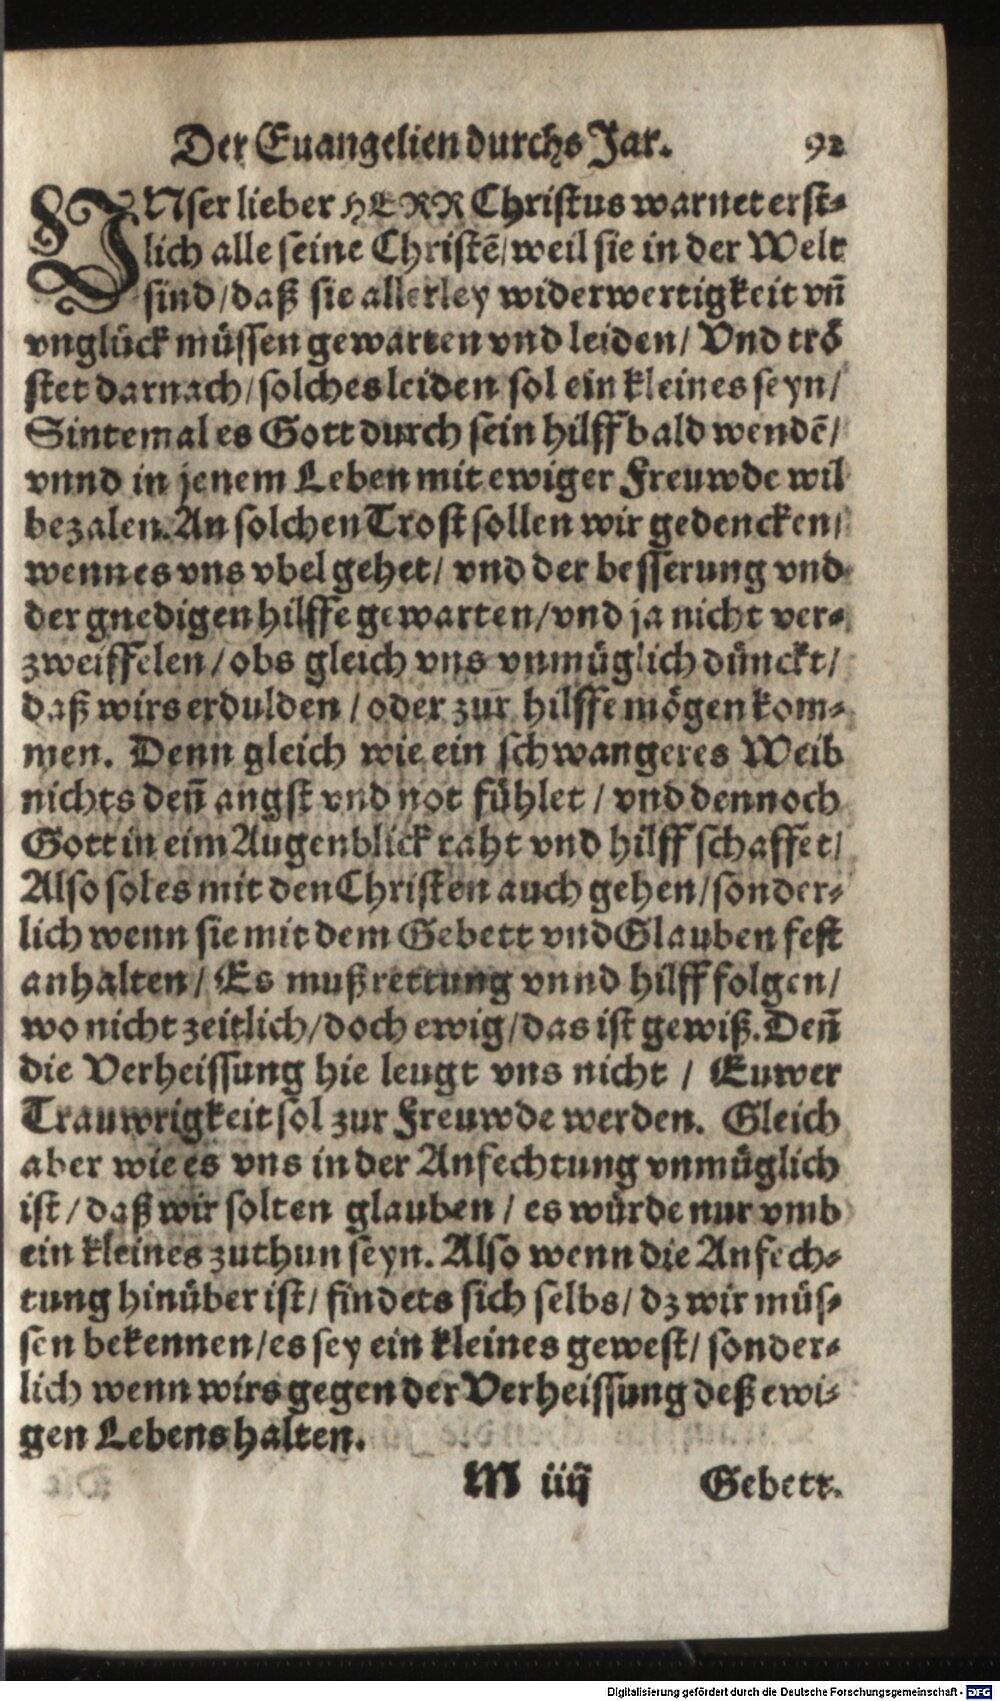 Der Euangelien durchs Jar. 92
VNser lieber HERR Christus warnet erst-
lich alle seine Christē/ weil sie in der Welt
sind/ daß sie allerley widerwertigkeit vn̄
vnglück müssen gewarten vnd leiden/ Vnd trö
stet darnach/ solches leiden sol ein kleines seyn/
Sintemal es Gott durch sein hilff bald wendē/
vnnd in jenem Leben mit ewiger Freuwde wil
bezalen. An solchen Trost sollen wir gedencken/
wenn es vns vbel gehet/ vnd der besserung vnd
der gnedigen hilffe gewarten/ vnd ja nicht ver-
zweiffelen/ obs gleich vns vnmüglich dünckt/
daß wirs erdulden/ oder zur hilffe mögen kom-
men. Denn gleich wie ein schwangeres Weib
nichts den̄ angst vnd not fühlet/ vnd dennoch
Gott in eim Augenblick raht vnd hilff schaffet/
Also sol es mit den Christen auch gehen/ sonder-
lich wenn sie mit dem Gebett vnd Glauben fest
anhalten/ Es muß rettung vnnd hilff folgen/
wo nicht zeitlich/ doch ewig/ das ist gewiß. Den̄
die Verheissung hie leugt vns nicht/ Euwer
Trauwrigkeit sol zur Freuwde werden. Gleich
aber wie es vns in der Anfechtung vnmüglich
ist/ daß wir solten glauben/ es würde nur vmb
ein kleines zuthun seyn. Also wenn die Anfech-
tung hinüber ist/ findets sich selbs/ dz wir müs-
sen bekennen/ es sey ein kleines gewest/ sonder-
lich wenn wirs gegen der Verheissung deß ewi-
gen Lebens halten.
M iiij Gebett.
Digitalisierung gefördert durch die Deutsche Forschungsgemeinschaft - DFG